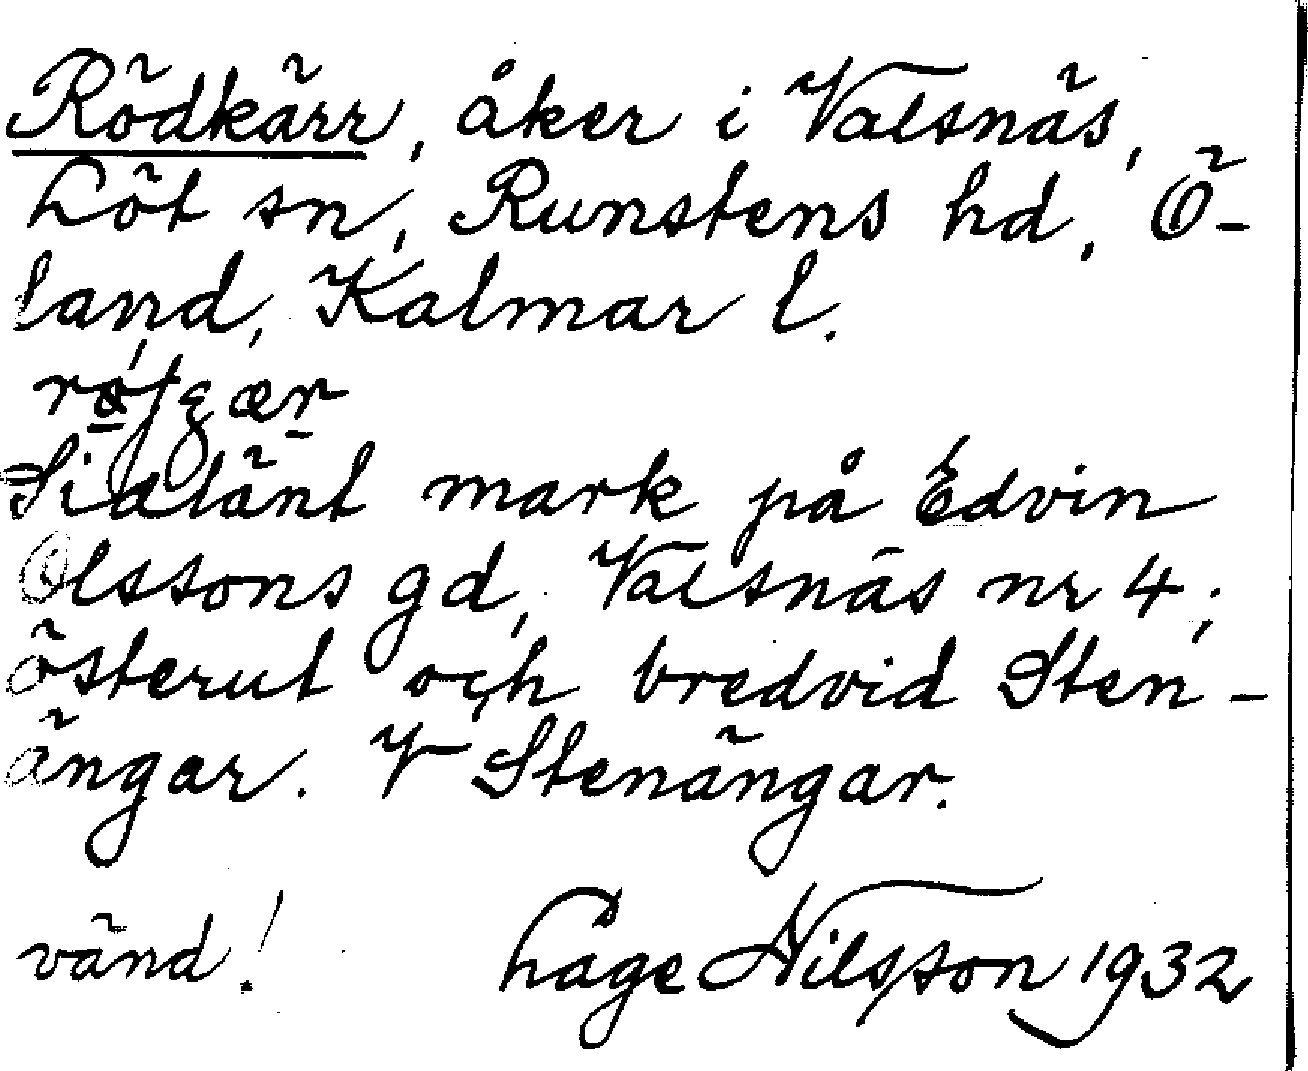 Rödkärr, åker i Valsnäs,
Löt sn, Runstens hd, Ö-
land, Kalmar l.
Sidlänt mark på Edvin
Olssons gd, Valsnäs nr 4;
österut och bredvid Sten-
ängar. V Stenängar.
vänd! Låge Nilsson 1932